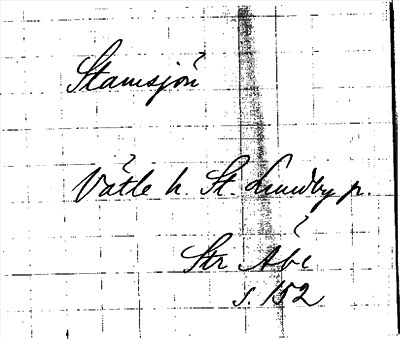 Stamsjön
Vätle h. St. Lundby p.
Str Åbc
s. 152